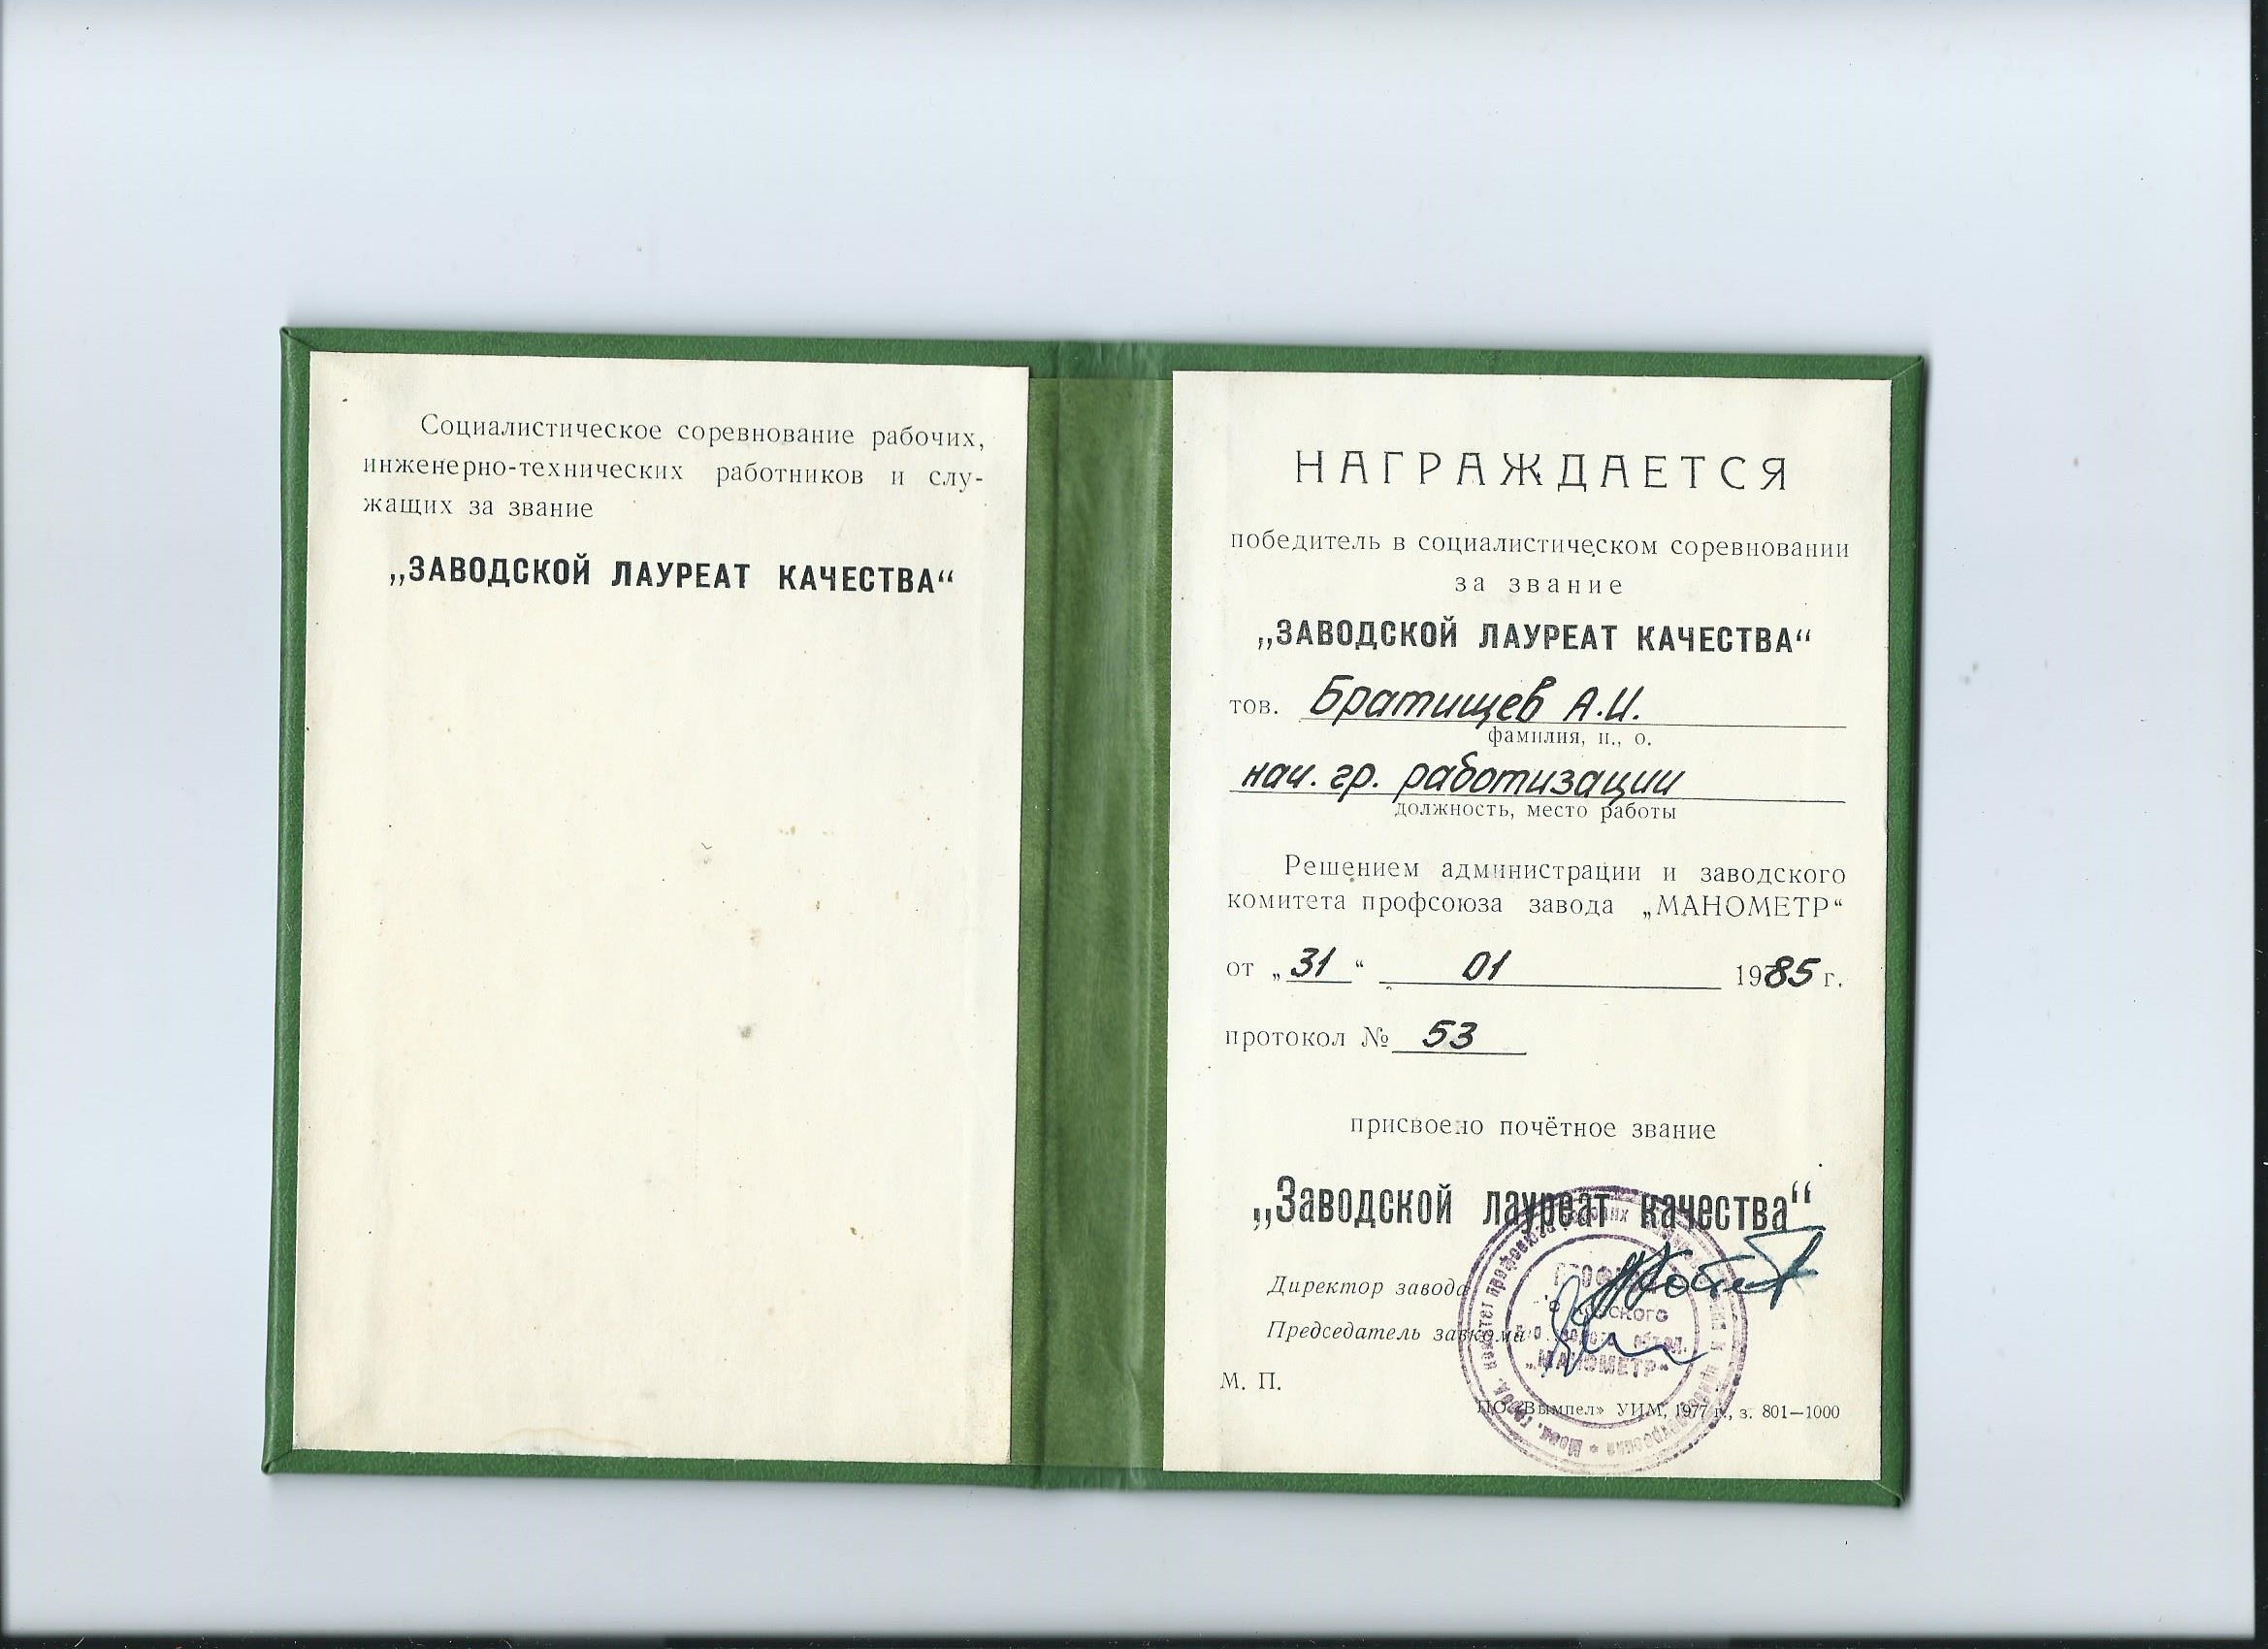 Социалистическое соревнование рабочих,
инженерно-технических работников и слу-
жащих за звание
„ЗАВОДСКОЙ ЛАУРЕАТ КАЧЕСТВА“
НАГРАЖДАЕТСЯ
победитель в социалистическом соревновании
за звание
„ЗАВОДСКОЙ ЛАУРЕАТ КАЧЕСТВА“
тов. Братищев А.И.
фамилия, и., о.
нач. гр. работизации
должность, место работы
Решением администрации и заводского
комитета профсоюза завода „МАНОМЕТР“
от „31“ 01 1985 г.
протокол № 53
присвоено почётное звание
„Заводской лауреат качества“
Директор завода
Председатель завкома
„МАНОМЕТР“
М. П.
ПО «Вымпел» УИМ, 1977 г., з. 801—1000